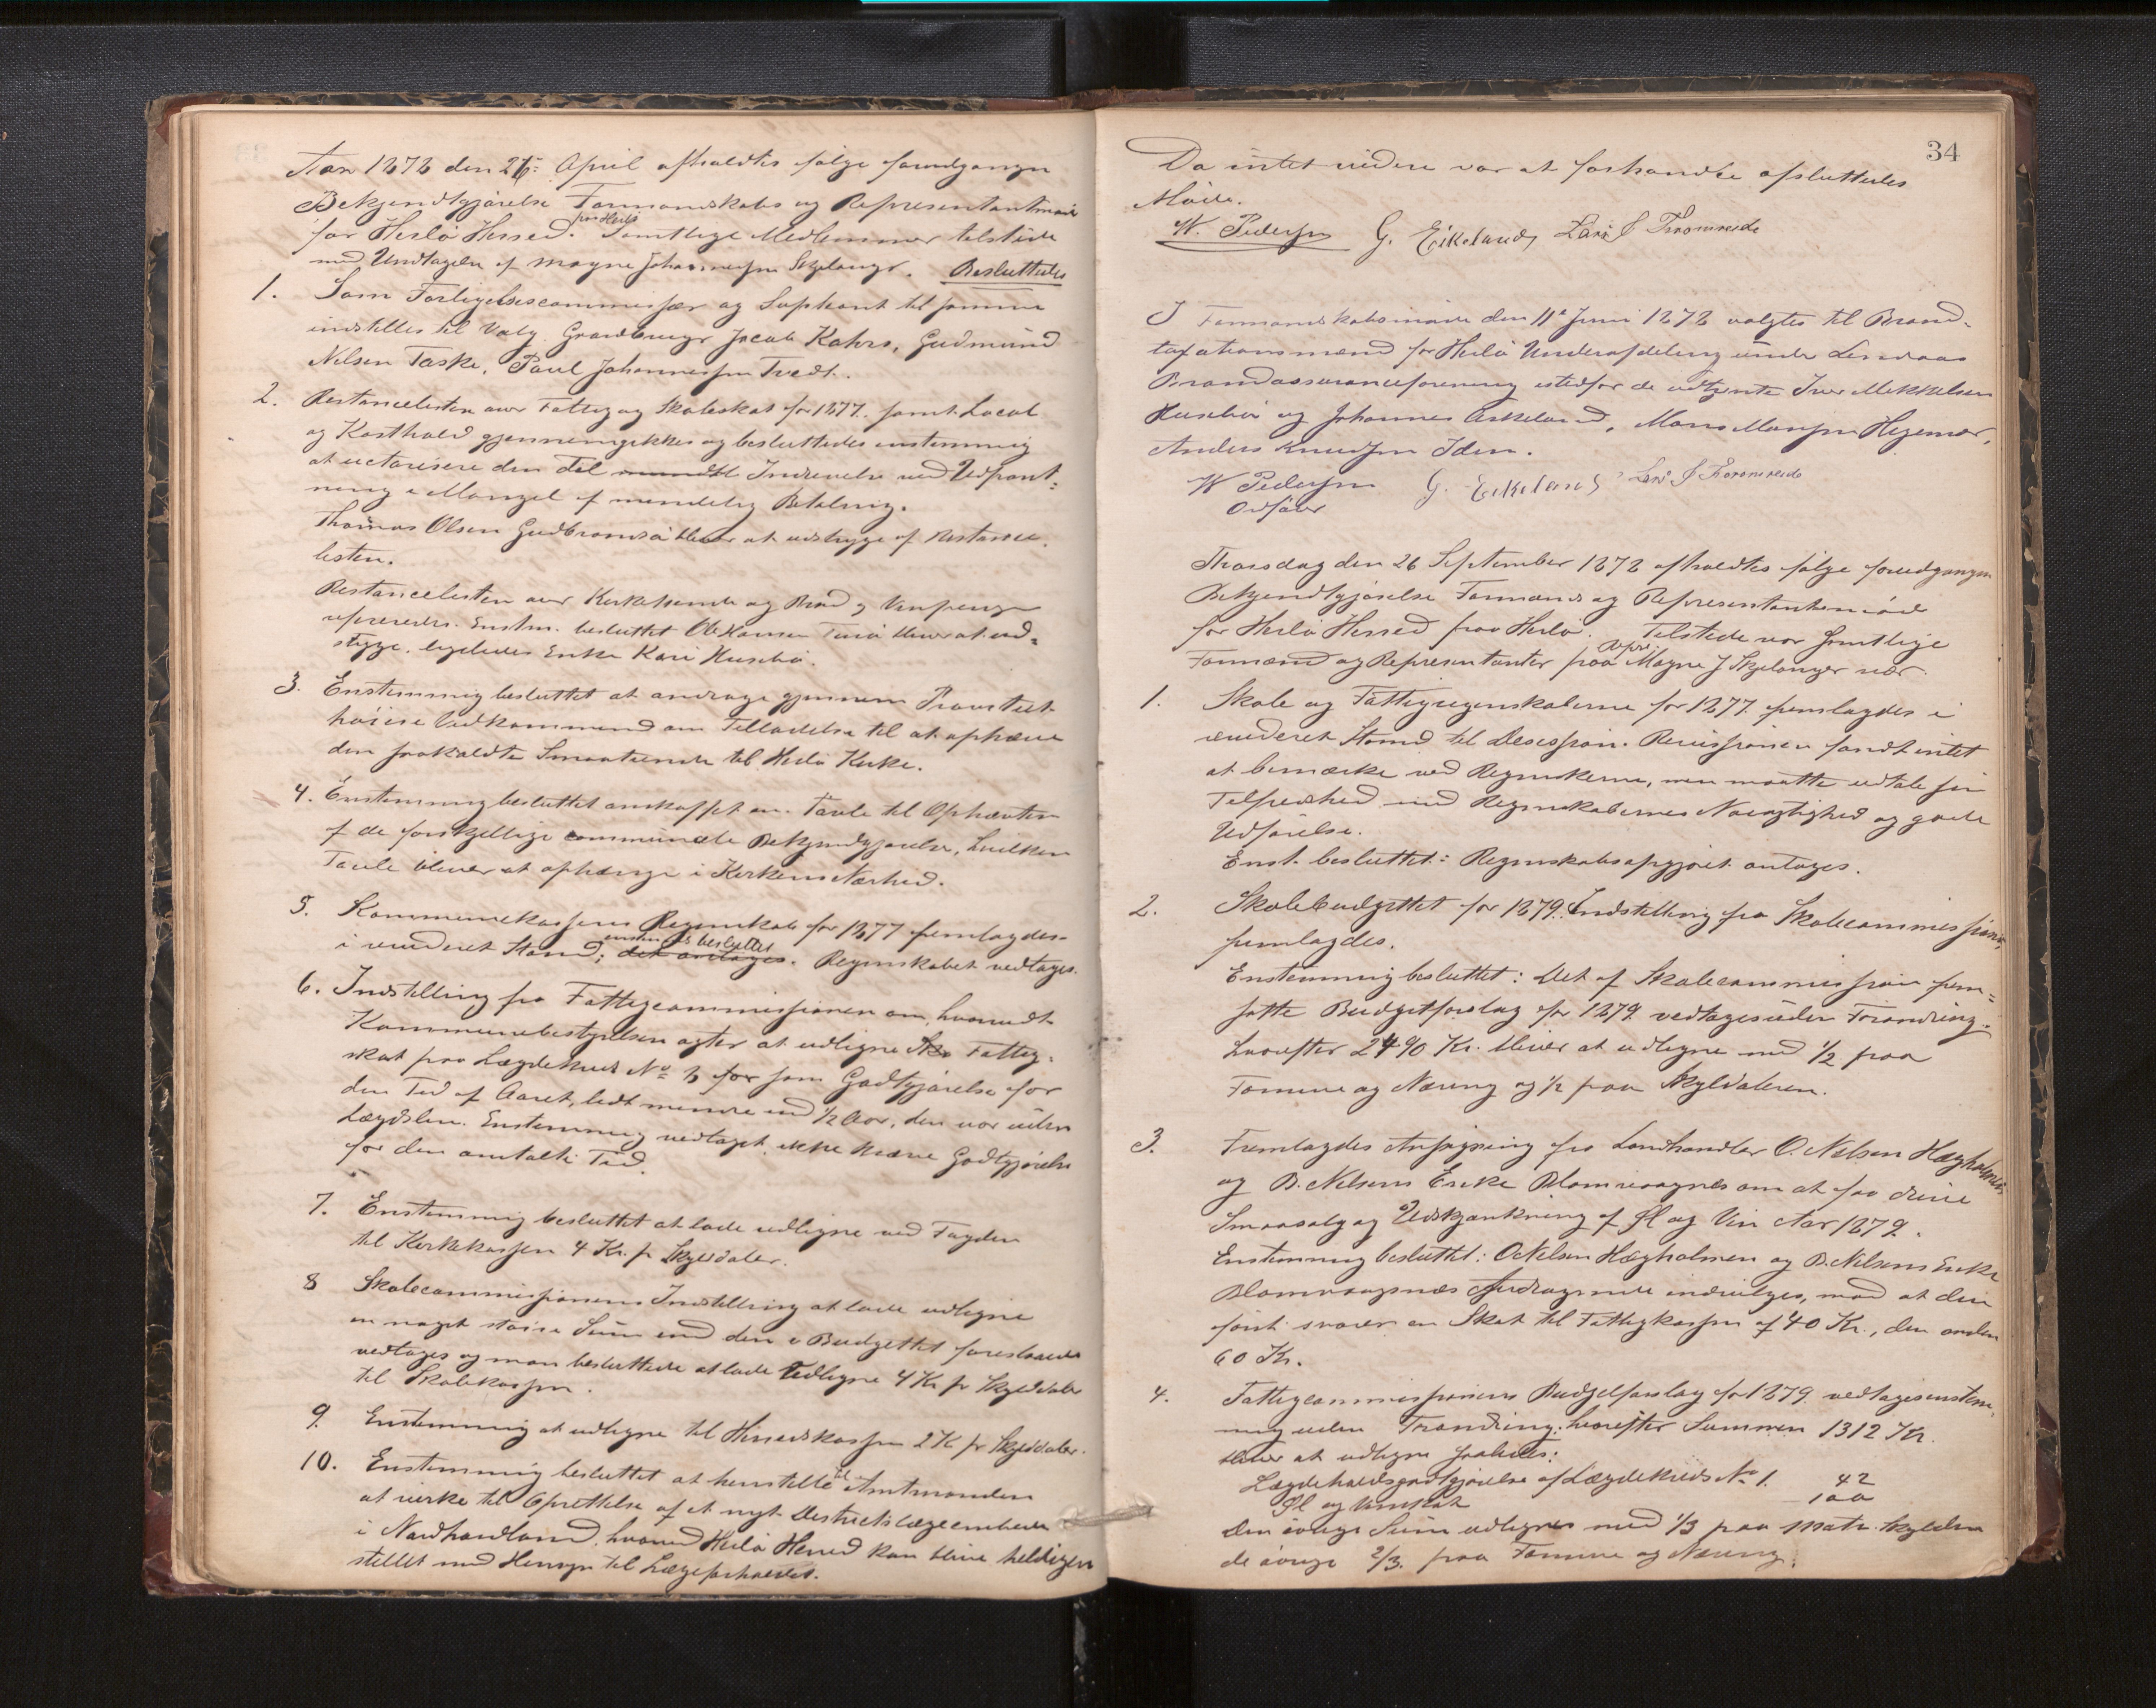 Aar 1878 den 26. April afholdtes følge forudgangen
Bekjendtgjørelse Formandskabs og Representantmøde
for Herlø Herred. paa Herlø Samtlige Medlemmer tilstede
med Undtagelse af Magne Johannessen Skjelanger. Besluttedes
1. Som Forligelsescommissær og Suppleant til samme
indstilles til Valg Gaardbruger Jacob Kahrs, Gudmund
Nilsen Taske, Paul Johannessen Tvedt.
2. Restancelisten over Fattig og Skoleskat for 1877 samt Local
og Kosthold gjennemgikkes og besluttedes enstemmig
at uctorisere den til Inddrivelse ved Udpant-
ning i Mangel af mindelig Betaling.
Thomas Olsen Gudbrandsø bliver at udstryge af Restance
listen.
Restancelisten over Kirketiende og Brød og Vinpenge
. Enstm. besluttet Ole Hansen Turø bliver at ud-
stryge. ligeledes Enke Kari Husebø.
3. Enstemmig besluttet at andrage gjennem Provstiet
høiere Vedkommende om Tilladelse til at ophæve
den saakaldte Smaatiende til Herlø Kirke.
4. Enstemmig besluttet anskaffet en Tavle til Ophængelse
af de forskjellige communale Bekjendtgjørelser, hvilken
Tavle bliver at ophænge i Kirkens Nærhed.
5. Kommunekassens Regnskab for 1877 fremlagdes
i revideret Stand; det antages. enstm. besluttet Regnskabet vedtages.
6. Indstilling fra Fattigcommissionen om, hvorvidt
Kommunebestyrelsen agter at udligne Fattig-
skat paa Lægdekreds No 3 for som Godtgjørelse for
den Tid af Aaret, lidt mindre end 1/2 Aar, den var uden
Lægdslem. Enstemmig vedtaget ikke kræve Godtgjørelse
for den omtalte Tid.
7. Enstemmig besluttet at lade udligne ved Fogden
til Kirkekassen 4 Kr. pr Skylddaler.
8 Skolecommissionens Indstilling at lade udligne
en noget større Sum end den i Budgettet foreslaaede
vedtages og man besluttede at lade Udligne 4 Kr pr Skylddaler
til Skolekassen.
9. Enstemmig at udligne til Herredskassen 2 K pr Skylddaler.
10. Enstemmig besluttet at henstille til Amtmanden
at virke til Oprettelse af et nyt Districtslægeembede
i Nordhordland, hvorved Herlø Herred kan blive heldigere
stillet med Hensyn til Lægeforholdet.
34
Da intet videre var at forhandle afsluttedes
Møde.
W. Pedersen G. Eikeland, Lars J Tromereide
I Formandskabsmøde den 11te Juni 1878 valgtes til Brand-
taxationsmænd for Herlø Underafdeling under Lindaas
Brandassuranceforening istedfor de udtjente Iver Mikkelsen
Husebø og Johannes Eikeland, Mons Monsen Hegernæs,
Anders Knudsen Iden.
W Pedersen G. Eikeland, Lars J Tromereide
Ordfører
Thorsdag den 26 September 1878 afholdtes følge forudgangen
Bekjendtgjørelse Formænds og Representantemøde
for Herlø Herred paa Herlø. Tilstede var Samtlige
Formænd og Representanter paa repr. Magne J Skjelanger nær.
1. Skole og Fattigregnskaberne for 1877 fremlagdes i
revideret Stand til Desission. Revissionen fandt intet
at bemærke ved Regnskberne, men maatte udtale sin
Tilfredshed med Regnskabernes Nøiagtighed og gode
Udførelse.
Enst. besluttet: Regnskabsopgjøret antages.
2. Skolebudgettet for 1879. Indstilling fra Skolecommissionen
fremlagdes.
Enstemmig besluttet: Det af Skolecommissionen frem-
satte Budgetforslag for 1879 vedtages uden Forandring.
hvorefter 2490 Kr. bliver at udligne med 1/2 paa
Formue og Næring og 1/2 paa Skylddaleren.
3. Fremlagdes Ansøgning fra Landhandler O. Nilsen Hægholmen
og B. Nilsens Enke Blomvaagnæs om at faa drive
Smaasalg og Udskjænkning af Øl og Vin Aar 1879.
Enstemmig besluttet: O Nilsen Hægholmen og B. Nilsens Enke
Blomvaagnæs Andragende indvilges, mod at den
først svarer en Skat til Fattigkassen af 40 Kr., den anden
60 Kr.
4. Fattigcommissionens Budgetforslag for 1879 vedtages enstem-
mig uden Forandring; hvorefter Summen 1312 Kr.
bliver at udligne saaledes:
Lægdeholdsgodtgjørelse af Lægdekreds No 1. 42
Øl og Vinskat 100
Den øvrige Sum udlignes med 1/3 paa Matr. Skylden
de øvrige 2/3. paa Formue og Næring.